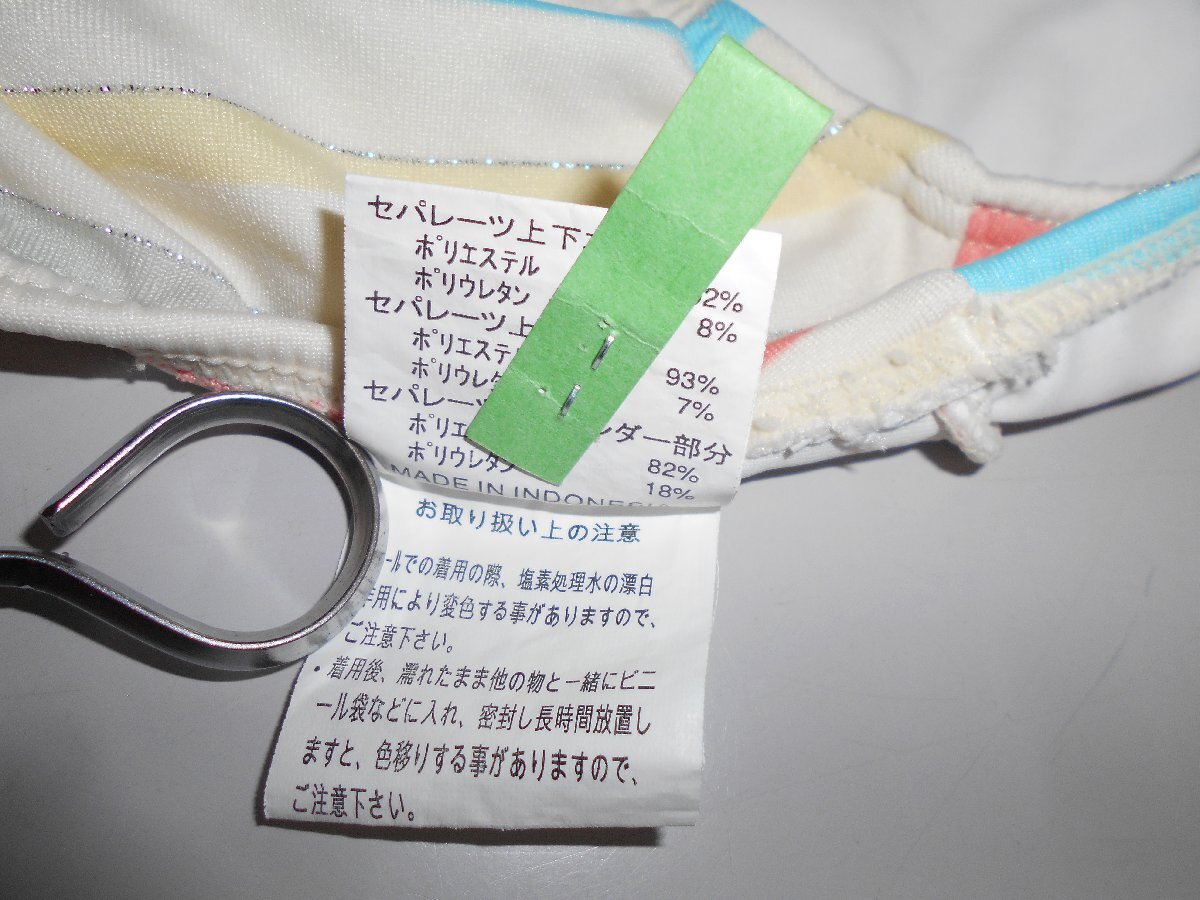 セパレーツ上下
ポリエステル 2%
ポリウレタン 8%
セパレーツ上
ポリエステ 93%
ポリウレタ 7%
セパレーツ ンダー部分
ポリエ 82%
ポリウレタン 18%
MADE IN INDONESIA
お取り扱い上の注意
ールでの着用の際、塩素処理水の漂白
作用により変色する事がありますので、
ご注意下さい。
・着用後、濡れたまま他の物と一緒にビニ
ール袋などに入れ、密封し長時間放置し
ますと、色移りする事がありますので、
ご注意下さい。